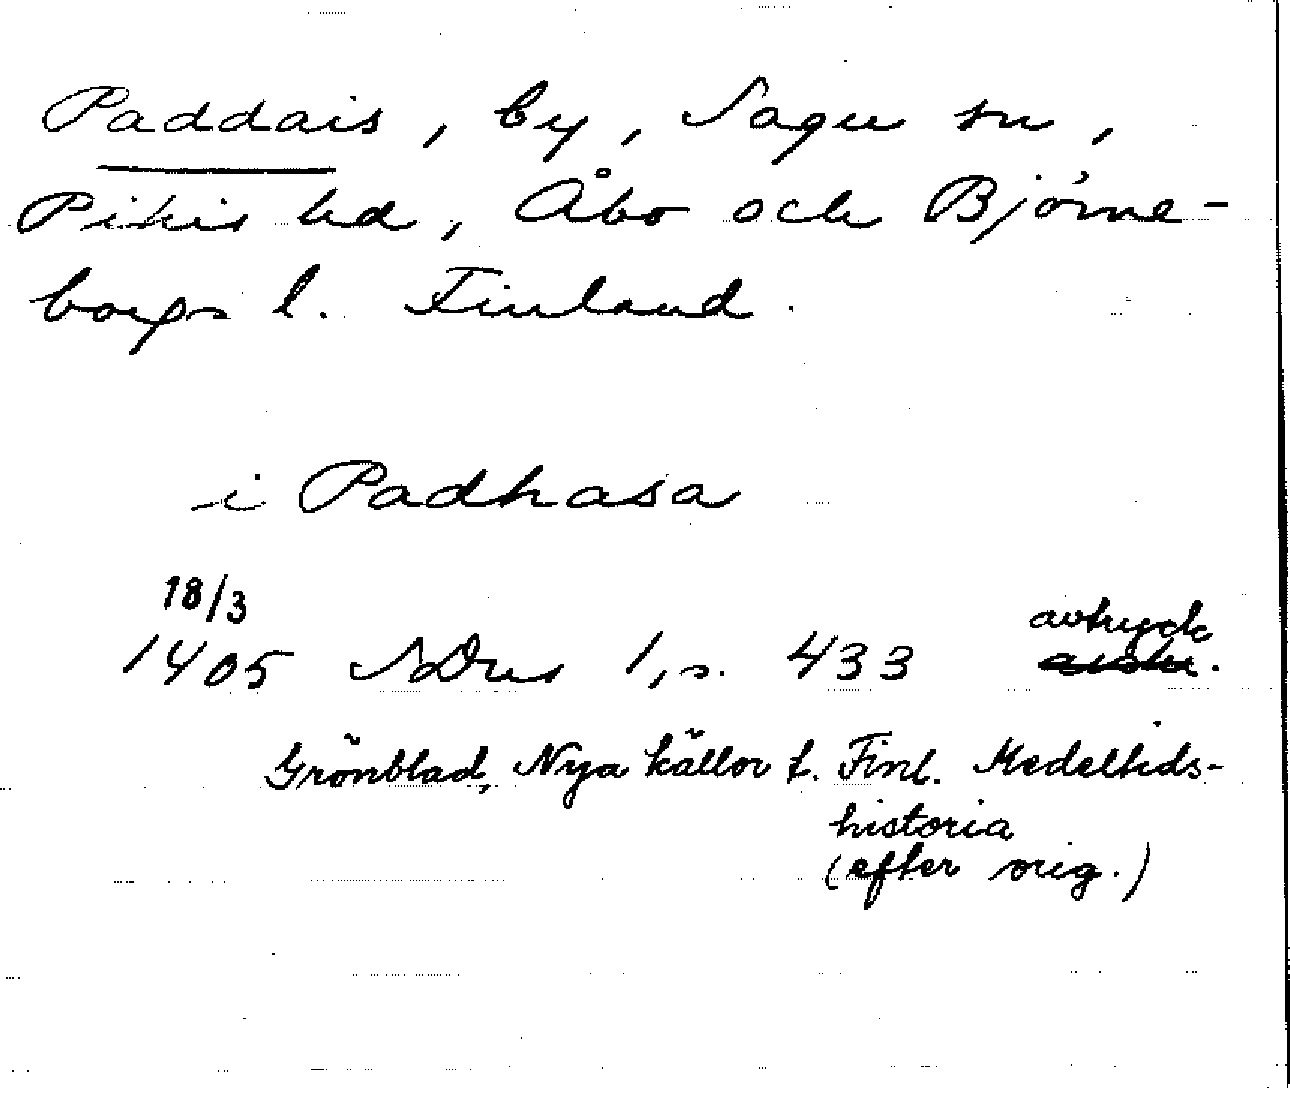 Paddais, by, Nagu sn,
Pikis hd, Åbo och Björne-
borgs l. Finland.
i Padhasa
18/3
1405 SDns 1, s. 433 avtryck
Grönblad, Nya källor t. Finl. Medeltids-
historia
(efter orig.)